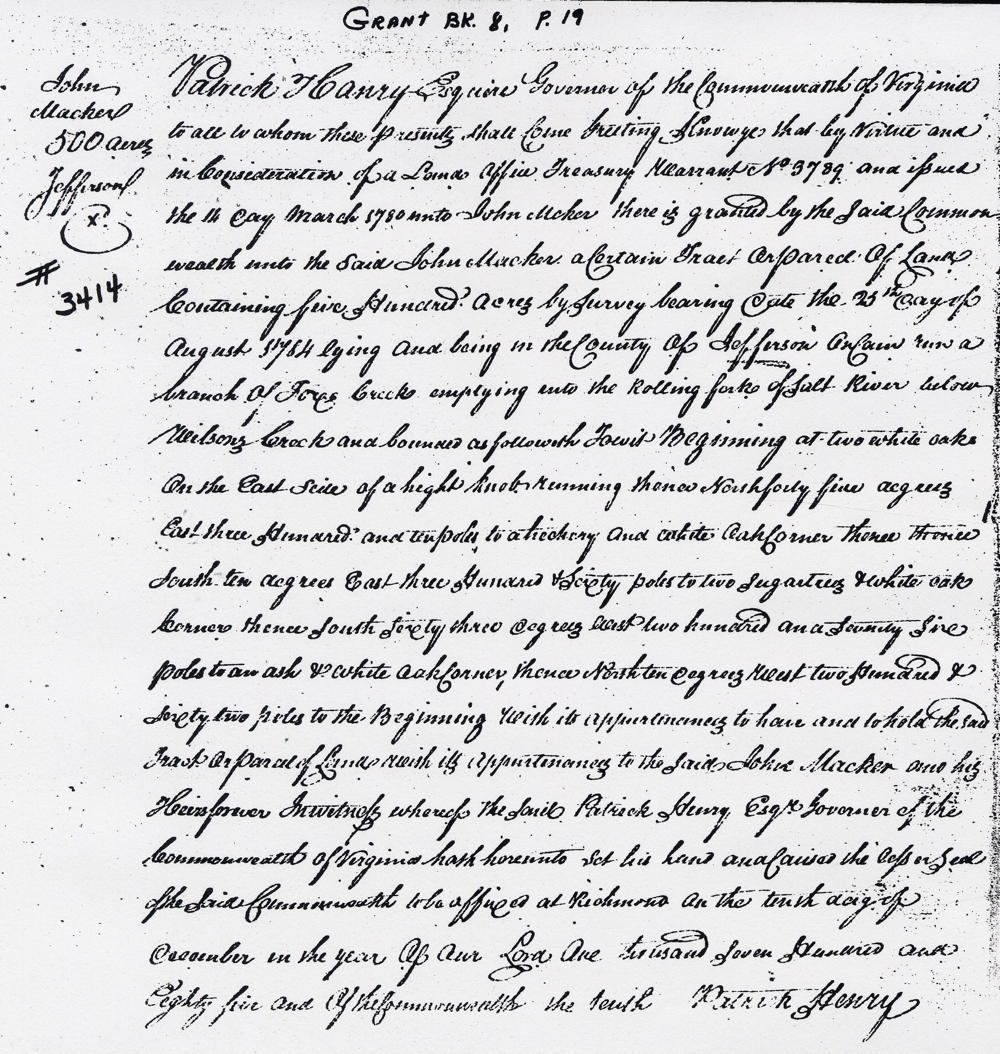 GRANT BK. 8, P. 19
John
Macker
500 acres
Jefferson
x
#
3414
Patrick Hanry Esquire Governor of the Commonwealth of Virginia
to all to whom these presents shall Come Greeting Know ye that by Virtue and
in Consideration of a Land Office Treasury Warrant No 3789 and issued
the 14 day March 1780 unto John Mcker there is granted by the Said Common
wealth unto the Said John Macker a Certain Tract Or parcel Of Land
Containing five Hundred Acres by Survey bearing Date the 25th Day of
August 1784 lying And being in the County Of Jefferson On Cain run a
branch Of Creek emptying into the Rolling fork of Salt River below
Wilsons Creek and bounded as followeth Towit Beginning at two white oaks
On the East Side of a hight knob running thence North forty five degrees
East three Hundred and ten poles to a hickory And white Oak Corner thence thence
South ten degrees East three Hundred & Sixty poles to two Sugartrees & white oak
Corner thence South Sixty three Degrees west two hundred and Seventy Six
poles to an ash & white Oak Corner, thence North ten Degrees West two Hundred &
Sixty two poles to the Beginning With its appurtenances to have and to hold the said
Tract Or parcel of Land with its Appurtenances to the Said John Macker and his
Heirs forever In witness whereof the Said Patrick Henry Esqr Governor of the
Commonwealth Of Virginia hath hereunto Set his hand and Caused the lesser Seal
of the Said Commonwealth to be affixed at Richmond On the tenth day of
December in the year Of Our Lord One thousand Seven Hundred and
Eighty five and Of the Commonwealth the tenth Patrick Henry